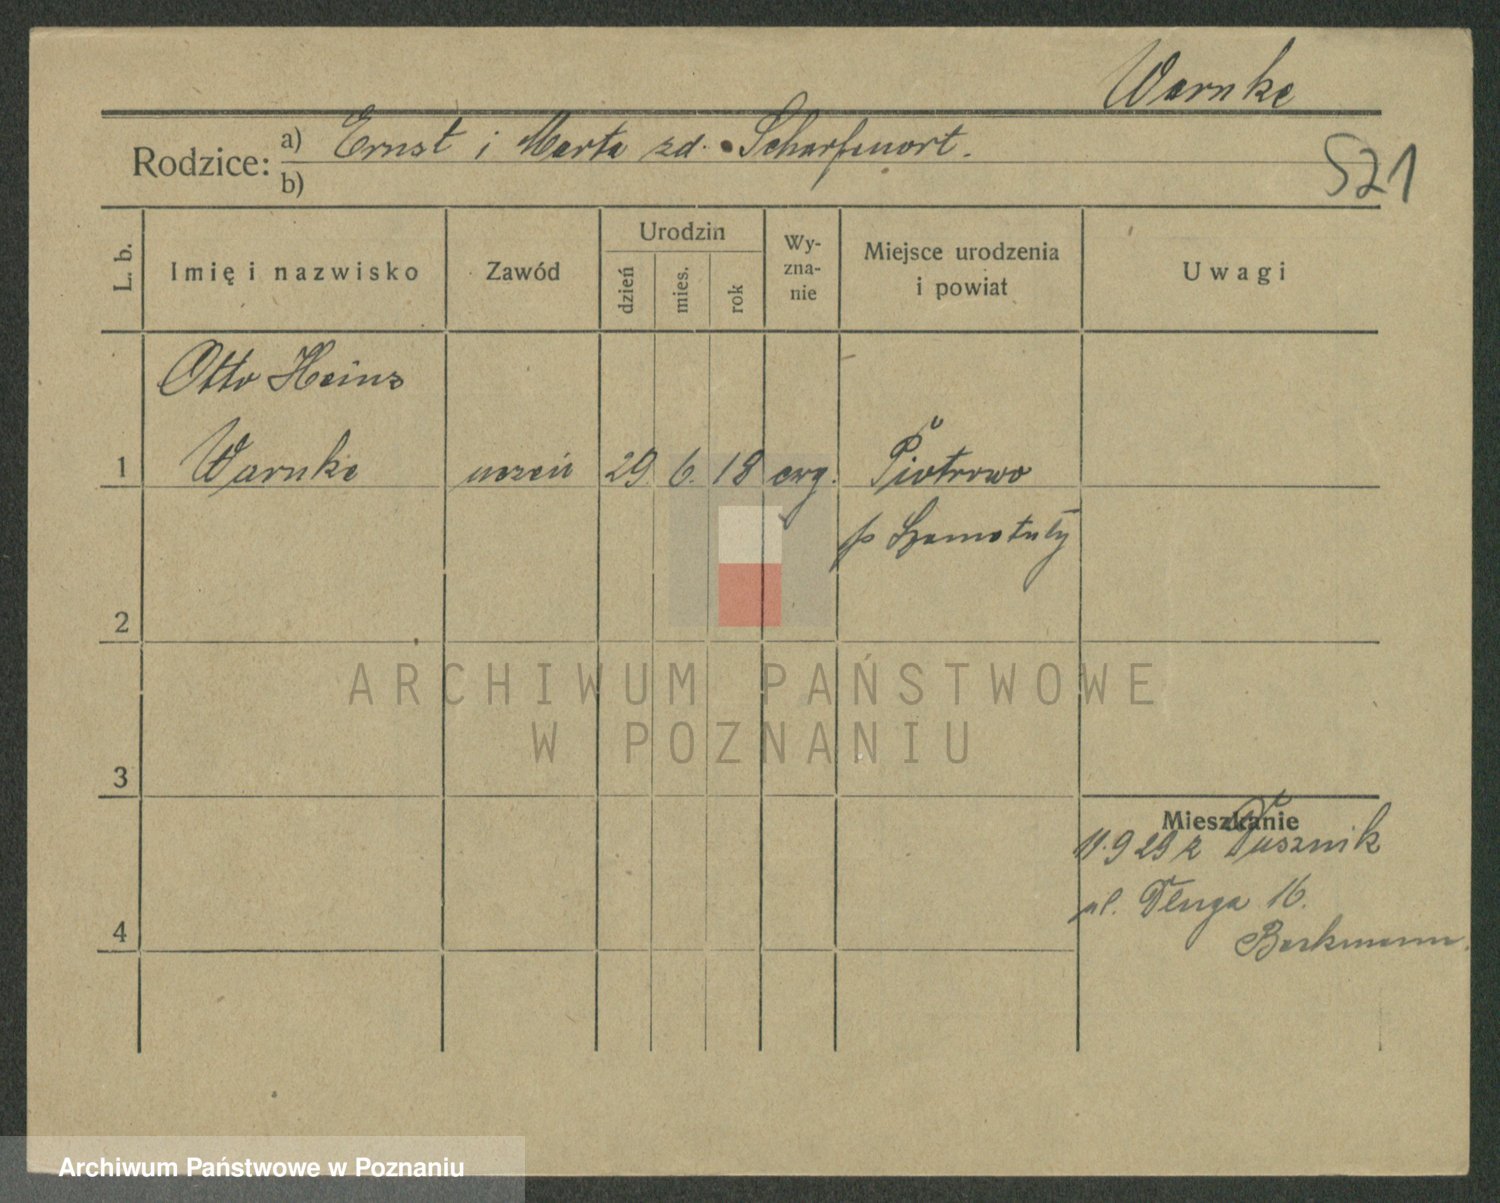 Warnke
Rodzice: a) Ernst i Marta zd. Scharfenort.
b)
521
L. b.
Imię i nazwisko
Zawód
Urodzin
dzień
mies.
rok
Wy-
zna-
nie
Miejsce urodzenia
i powiat
Uwagi
Otto Heinz
1 Warnke uczeń 29. 6. 18 ewg. Piotrowo
p Szamotuły
2
ARCHIWUM PAŃSTWOWE
W POZNANIU
3
Mieszkanie
11.9 29 z Dusznik
ul. Długa 16.
Berkmann.
4
Archiwum Państwowe w Poznaniu